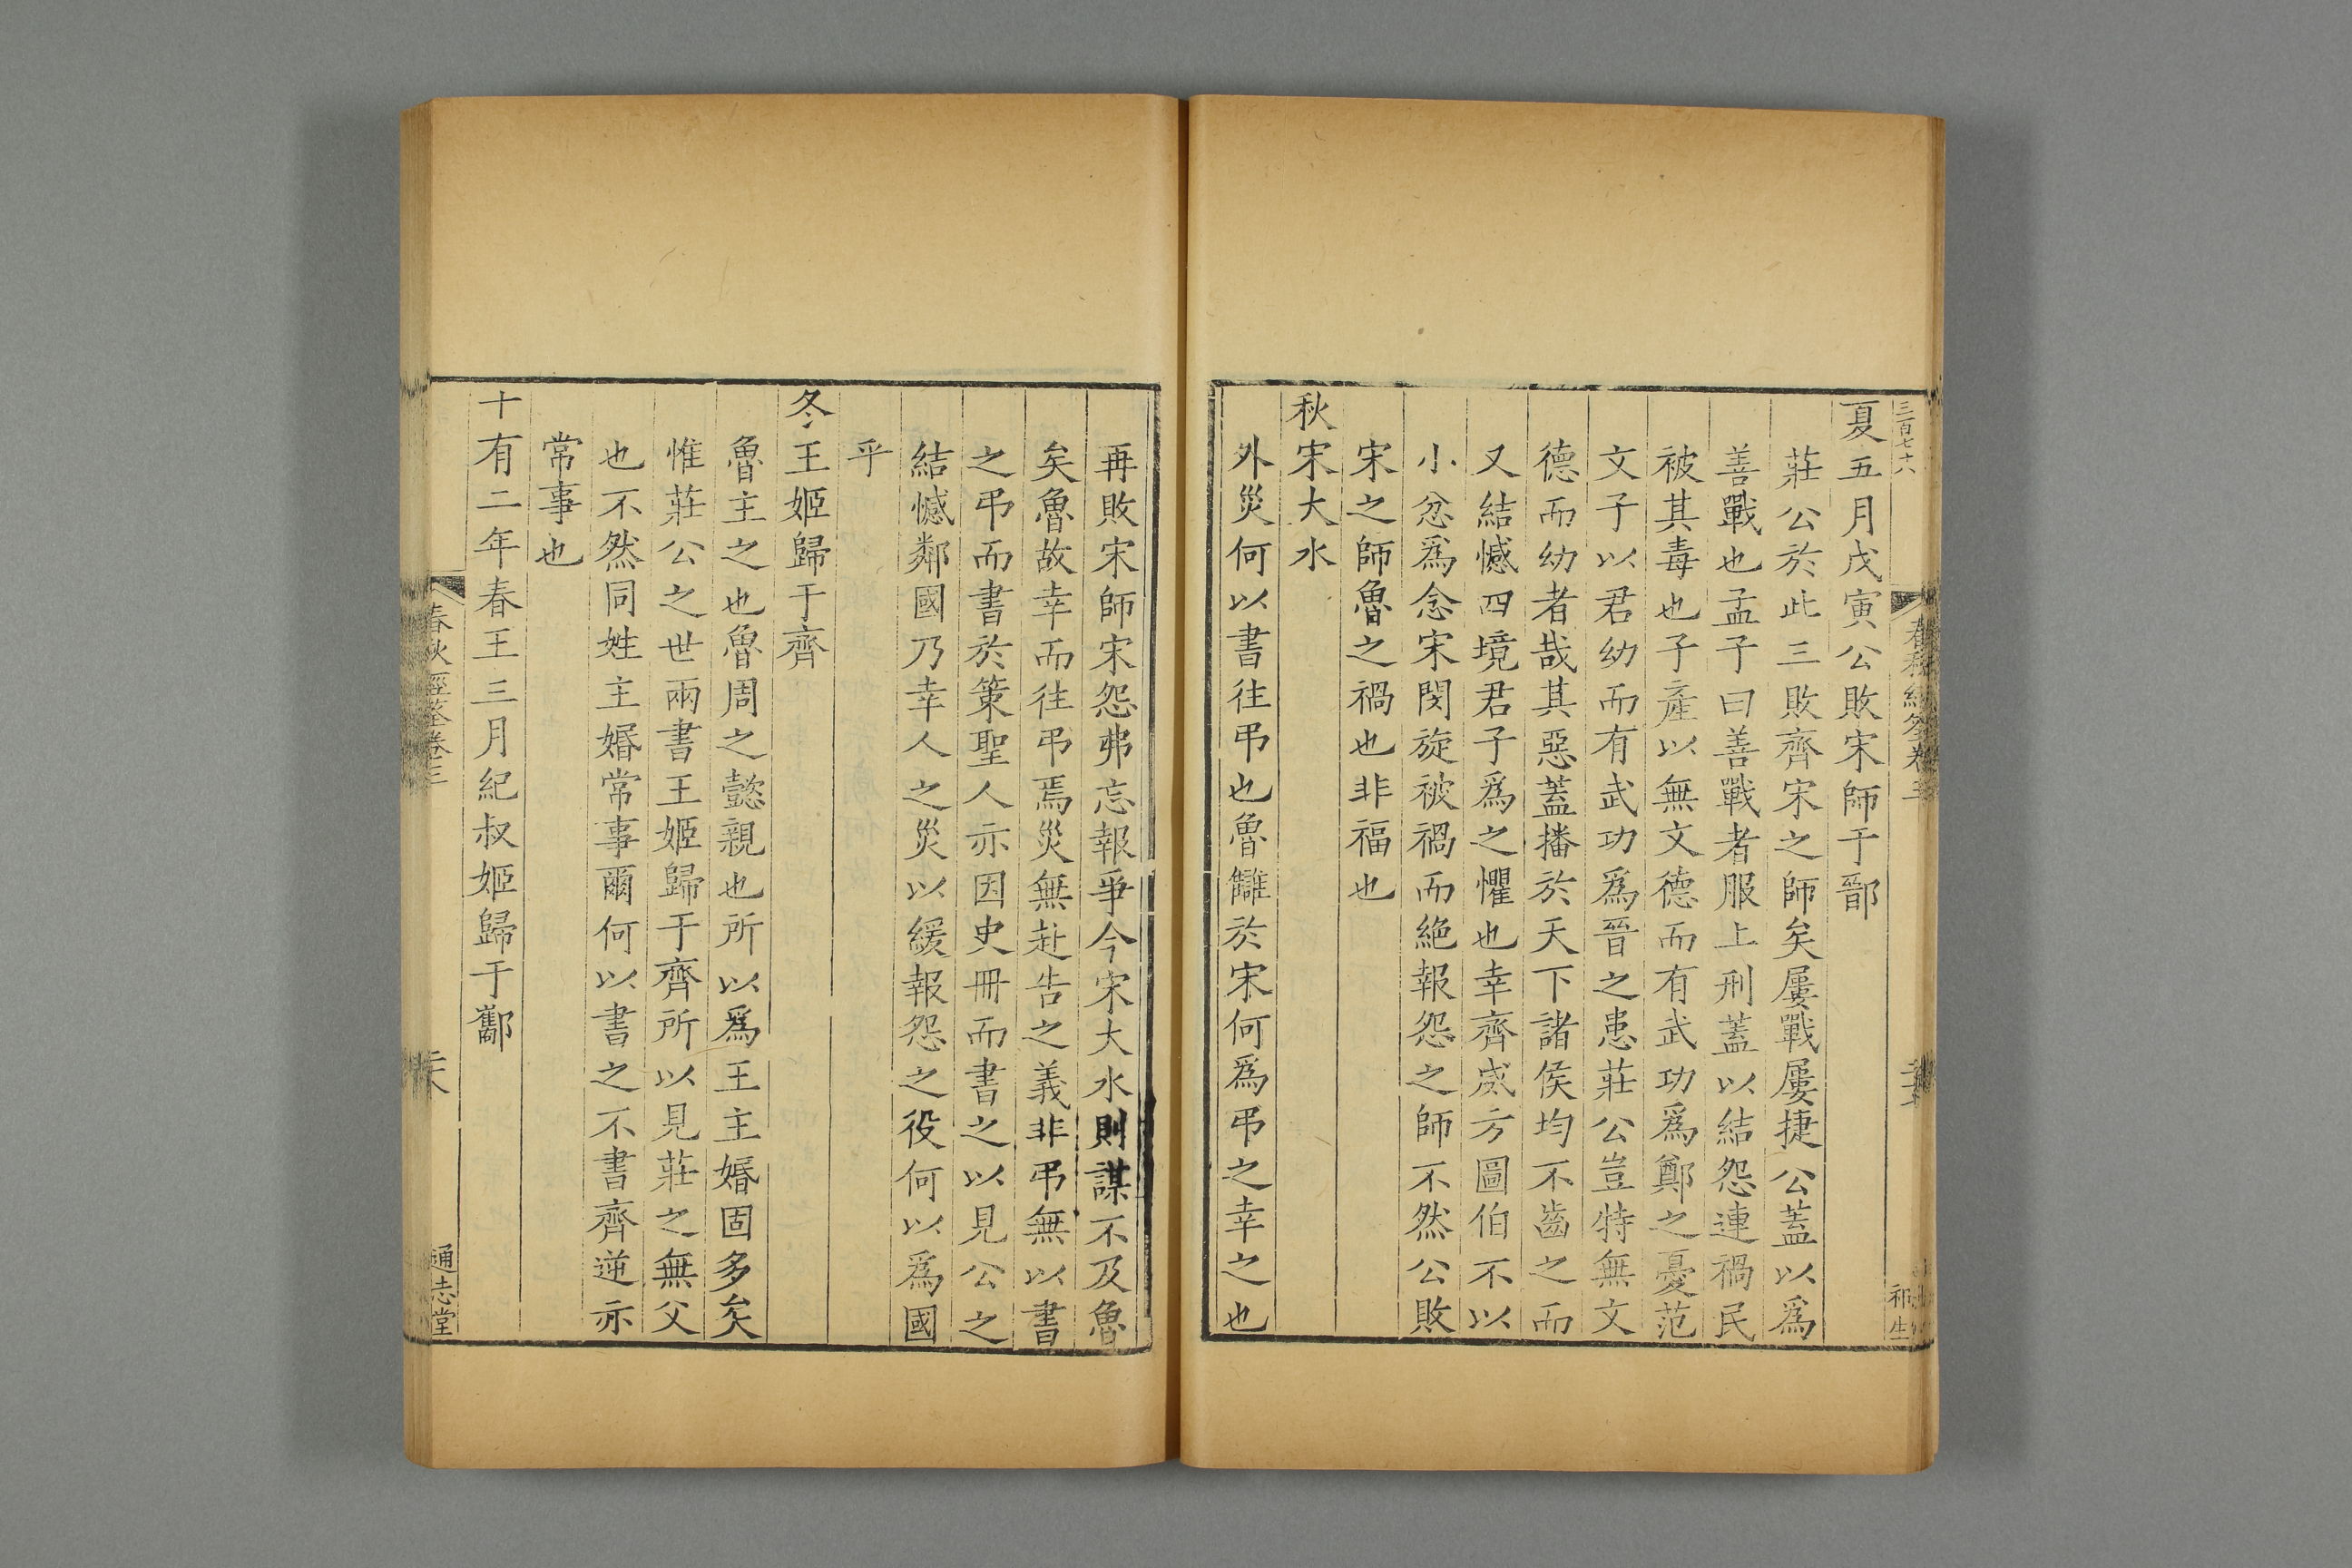 三百七十六
夏五月戊寅公敗宋師于鄑
莊公於此三敗齊宋之師矣屢戰屢捷公蓋以爲
善戰也孟子曰善戰者服上刑蓋以結怨連禍民
被其毒也子產以無文德而有武功爲鄭之憂范
文子以君幼而有武功爲晉之患莊公豈特無文
德而幼者哉其惡蓋播於天下諸侯均不齒之而
又結憾四境君子爲之懼也幸齊威方圖伯不以
小忿爲念宋閔旋被禍而絶報怨之師不然公敗
宋之師魯之禍也非福也
秋宋大水
外災何以書往弔也魯讎於宋何爲弔之幸之也
再敗宋師宋怨弗忘報爭今宋大水則謀不及魯
矣魯故幸而往弔焉災無赴告之義非弔無以書
之弔而書於策聖人亦因史冊而書之以見公之
結憾鄰國乃幸人之災以緩報怨之役何以爲國
乎
冬王姬歸于齊
魯主之也魯周之懿親也所以爲王主婚固多矣
惟莊公之世兩書王姬歸于齊所以見莊之無父
也不然同姓主婚常事爾何以書之不書齊逆亦
常事也
十有二年春王三月紀叔姬歸于酅
春秋經筌卷三
通志堂